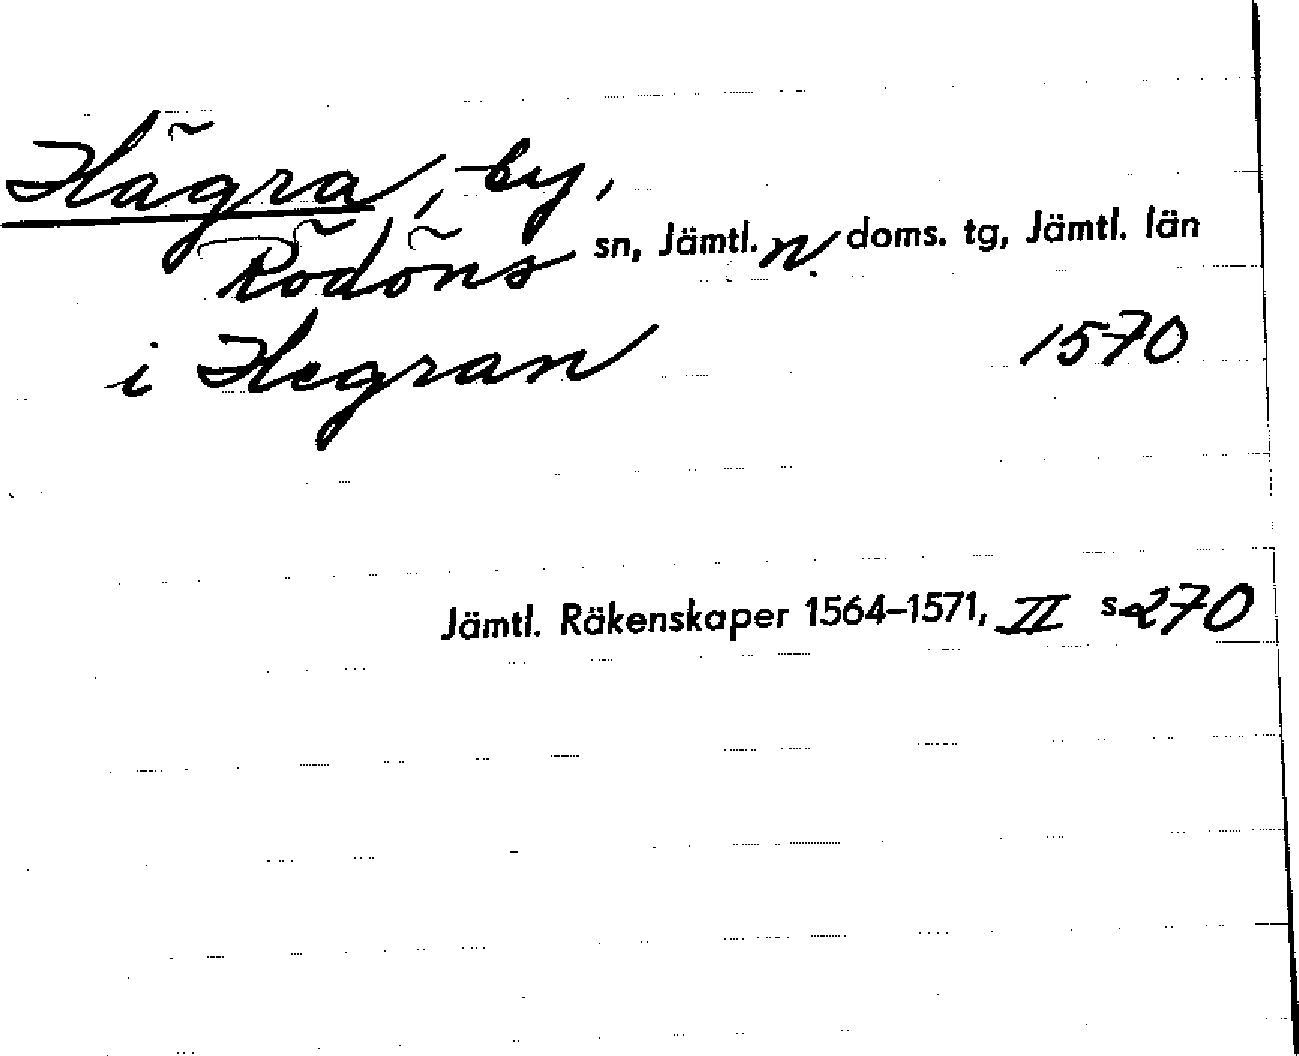 Hägra, by,
Rödöns sn, Jämtl. n. doms. tg, Jämtl. län
i Hegran 1570
Jämtl. Räkenskaper 1564–1571, II s 270